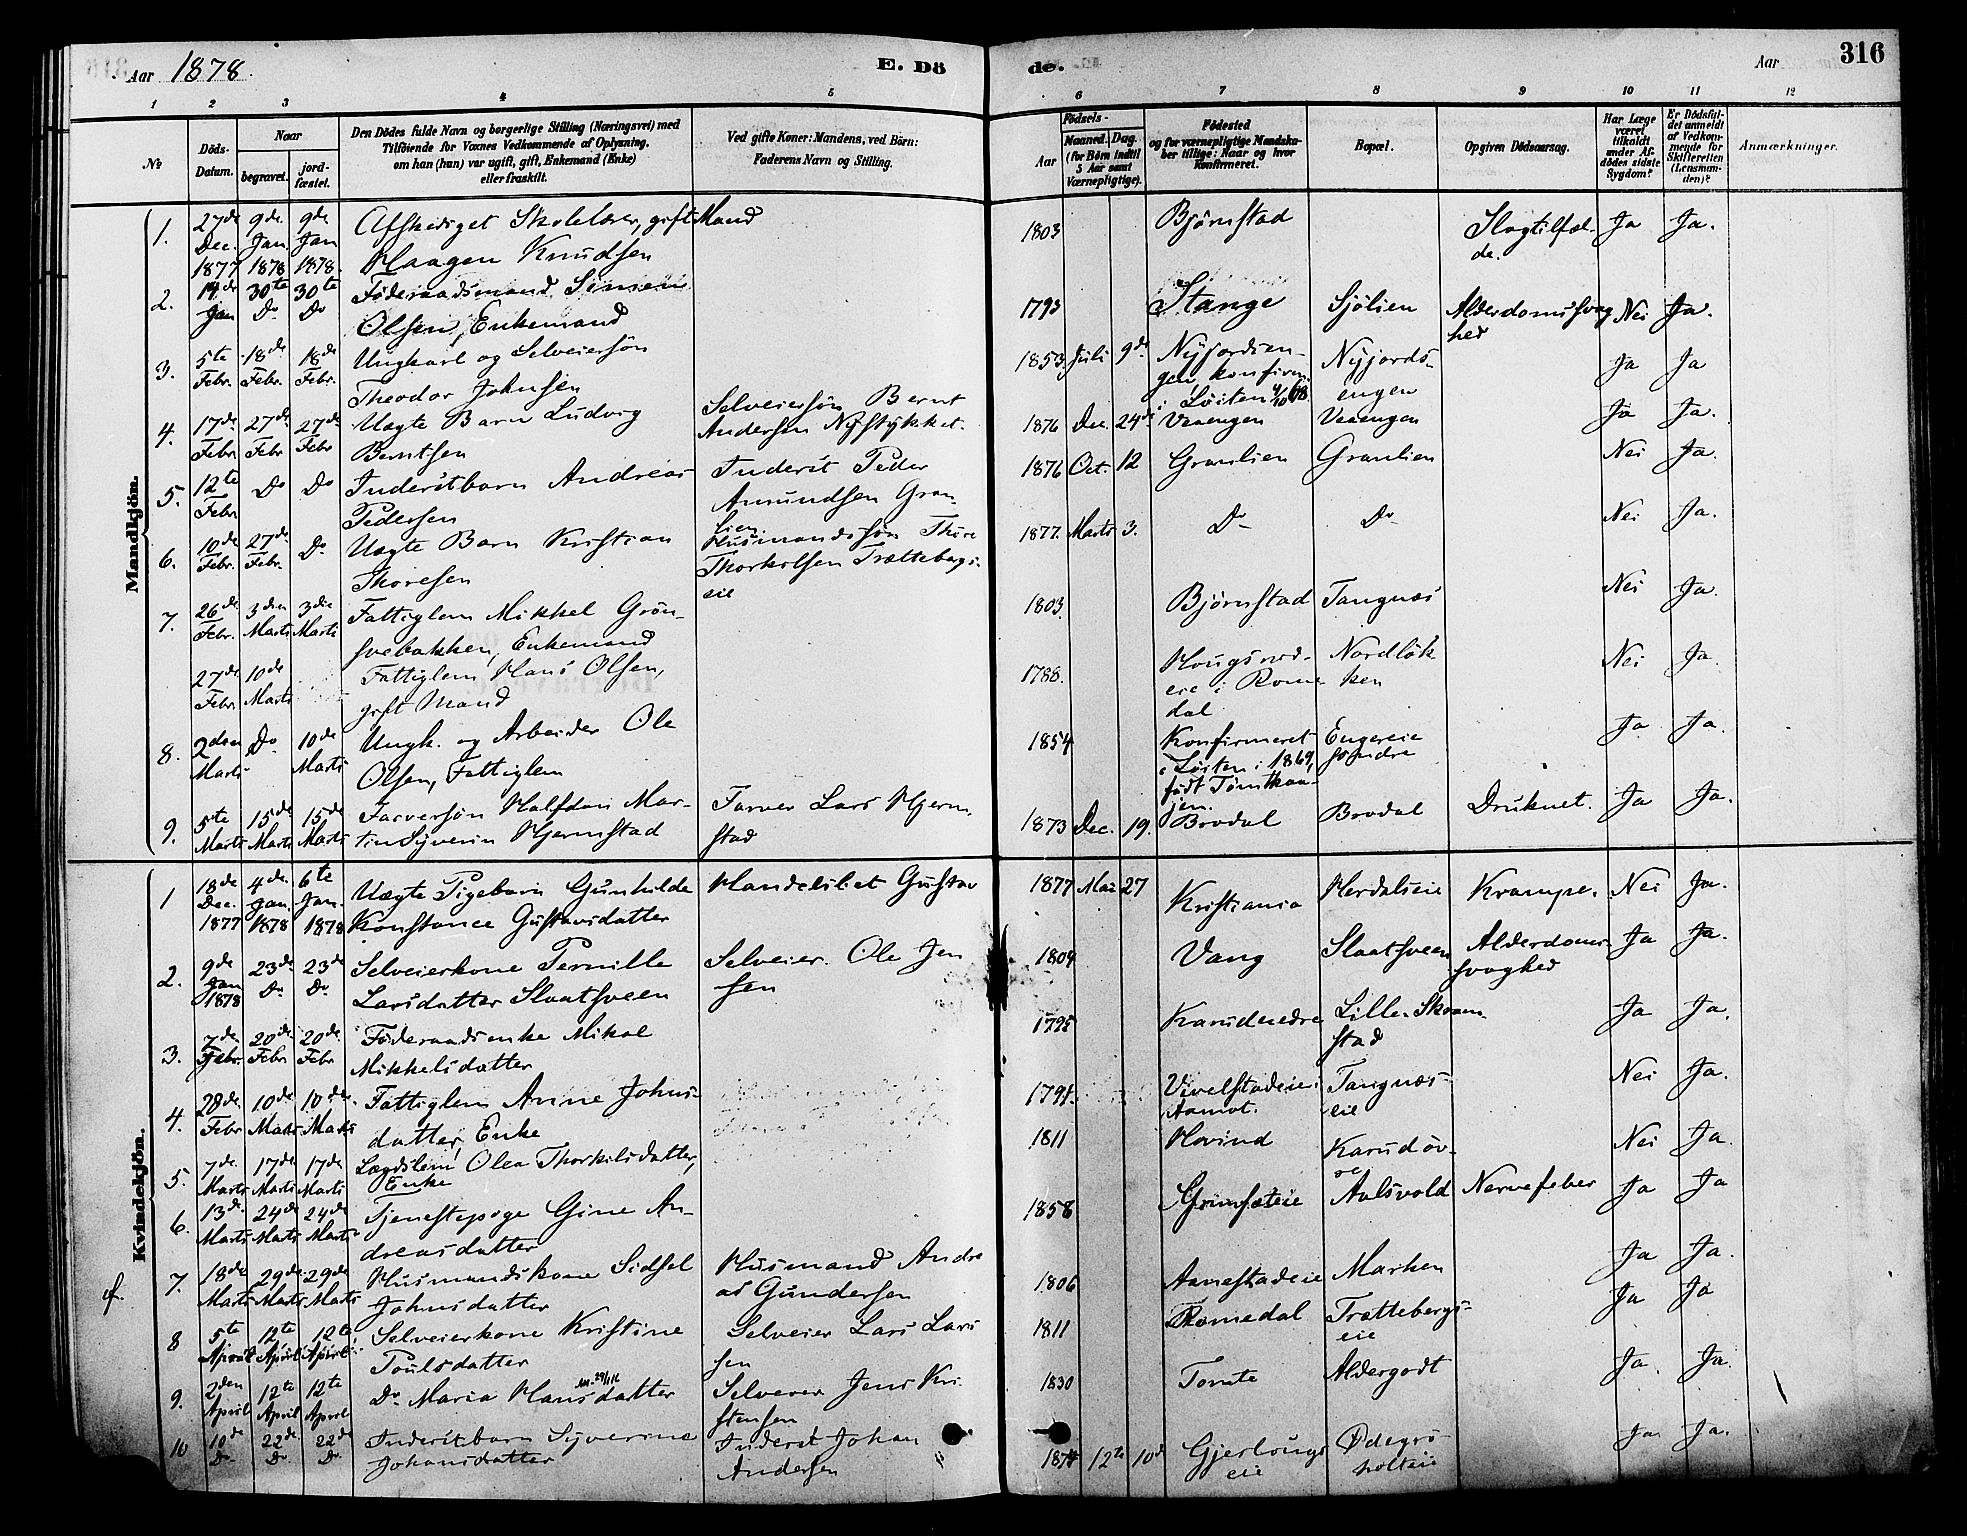 Aar 1878.
E. Döde.
Aar
316
1 2 3 4 5 6 7 8 9 10 11 12
№
Döds-Datum.
Naar
begravet.
jord-fæstet.
Den Dödes fulde Navn og borgerlige Stilling (Næringsvei) med
Tilföiende for Voxnes Vedkommende af Oplysning,
om han (hun) var ugift, gift, Enkemand (Enke)
eller fraskilt.
Ved gifte Koner: Mandens, ved Börn:
Faderens Navn og Stilling.
Födsels-
Aar
Maaned. Dag.
(for Börn indtil
5 Aar samt
Værnepligtige).
Födested
og for værnepligtige Mandska-
ber tillige: Naar og hvor
Konfirmeret.
Bopæl.
Opgiven Dödsaarsag.
Har Læge
været
tilkaldt
under Af-
dödes sidste
Sygdom?
Er Dödsfal-
det anmeldt
af Vedkom-
mende for
Skifteretten
(Lensman-
den)?
Anmærkninger.
Mandkjön.
1. 27de Dec. 1877 9de Jan. 1878 9de Jan 1878. Afskediget Skolelærer, gift Mand
Haagen Knudsen 1803 Bjørnstad Slagtilfæl-
de. Ja Ja.
2. 14de Jan 30te Do 30te Do Føderaadsmand Simen
Olsen, Enkemand 1793 Stange Sjølien Alderdomssvag
hed Nei Ja.
3. 5te Febr. 18de Febr. 18de Febr. Ungkarl og Selveiersøn
Theodor Johnsen 1853 Juli 9de Nyjordsen-
gen, konfirm.
i Løiten 4/10 68 Nyjords-
engen Ja Ja
4. 17de Febr. 27de Febr 27de Febr Uægte Barn Ludvig
Berntsen Selveiersøn Bernt
Andersen Nystykket. 1876 Dec. 24de Vaaengen Vaaengen Ja Ja.
5. 12te Febr Do Do Inderstbarn Andreas
Pedersen Inderst Peder
Amundsen Gran-
lien 1876 Oct. 12 Granlien Granlien Nei Ja.
6. 10de Febr. 27de Febr. Do Uægte Barn Kristian
Thoresen Husmandssøn Thore
Thorkelsen Trættebergs-
eie 1877. Marts 3. Do Do Nei Ja.
7. 26de Febr. 3den Marts 3die Marts Fattiglem Mikkel Grøn-
svebakken, Enkemand 1803. Bjørnstad Tangnæs Nei Ja.
27de Febr. 10de Marts Fattiglem Hans Olsen,
gift Mand 1786. Hougsrud-
eie i Rome
dal Nordløk
ken Nei Ja.
8. 2den Marts Do 10de Marts Ungk. og Arbeider Ole
Olsen, Fattiglem 1854 Konfirmeret
i Løiten i 1869,
født Tomtkaa-
jen. Engereie
søndre Ja Ja.
9. 5te Marts 15de Marts 15de Marts Farversøn Halfdan Mar-
tin Syverin Hjermstad Farver Lars Hjerm
stad 1873 Dec. 19. Brodal Brodal Druknet. Ja Ja.
Kvindekjön.
1 18de Dec. 1877 4de Jan. 1878 6te Jan. 1878 Uægte Pigebarn Gunhilde
Konstance Gustavsdatter Handelsbet Gustav 1877 Mai 27 Kristiania Herdalseie Krampe. Nei Ja.
2. 9de Jan 1878 23de Do 23de Do Selveierkone Pernille
Larsdatter Slaatsveen Selveier. Ole Jen
sen 1804 Vang Slaatsveen Alderdoms-
svaghed Ja Ja.
3. 7de Febr. 20de Febr 20de Febr Føderaadsenke Mikal
Mikkelsdatter 1795 Karudnedre Lille Skram
stad Ja Ja.
4. 28de Febr 10de Marts 10de Marts Fattiglem Anne Johns-
datter, Enke 1791. Vivelstadeie i
Aamot. Tangnæs-
eie Nei Ja.
5. 7de Marts 17de Marts 17de Marts Lægdslem Olea Thorkilsdatter,
Enke 1811 Hovind Karud øv-
re Nei Ja.
6. 13de Marts 24de Marts 24de Marts Tjenestepige Gine An-
dreasdatter 1858 Grimsæteie Aalsvold Nervefeber Ja Ja
f. 7. 18de Marts 29de Marts 29de Marts Husmandskone Sidsel
Johnsdatter Husmand Andre
as Gundersen 1806 Aanestadeie Marken Ja Ja.
8 5te April 12te April 12te April Selveierkone Kristine
Poulsdatter Selveier Lars Lars
sen 1811 Romedal Trættebergs-
eie Ja Ja
9. 2den April 12te April 12te April Do Maria Hansdatter Selveier Jens Kri
stensen 1830 Tomte Aldergodt Ja. Ja.
10 10de Do 22de Do 22de Do Inderstbarn Syverine
Johansdatter Inderst Johan
Andersen 1874 12te 10de Gjerlougs
eie Ødegrs-
holteie Ja. Ja.